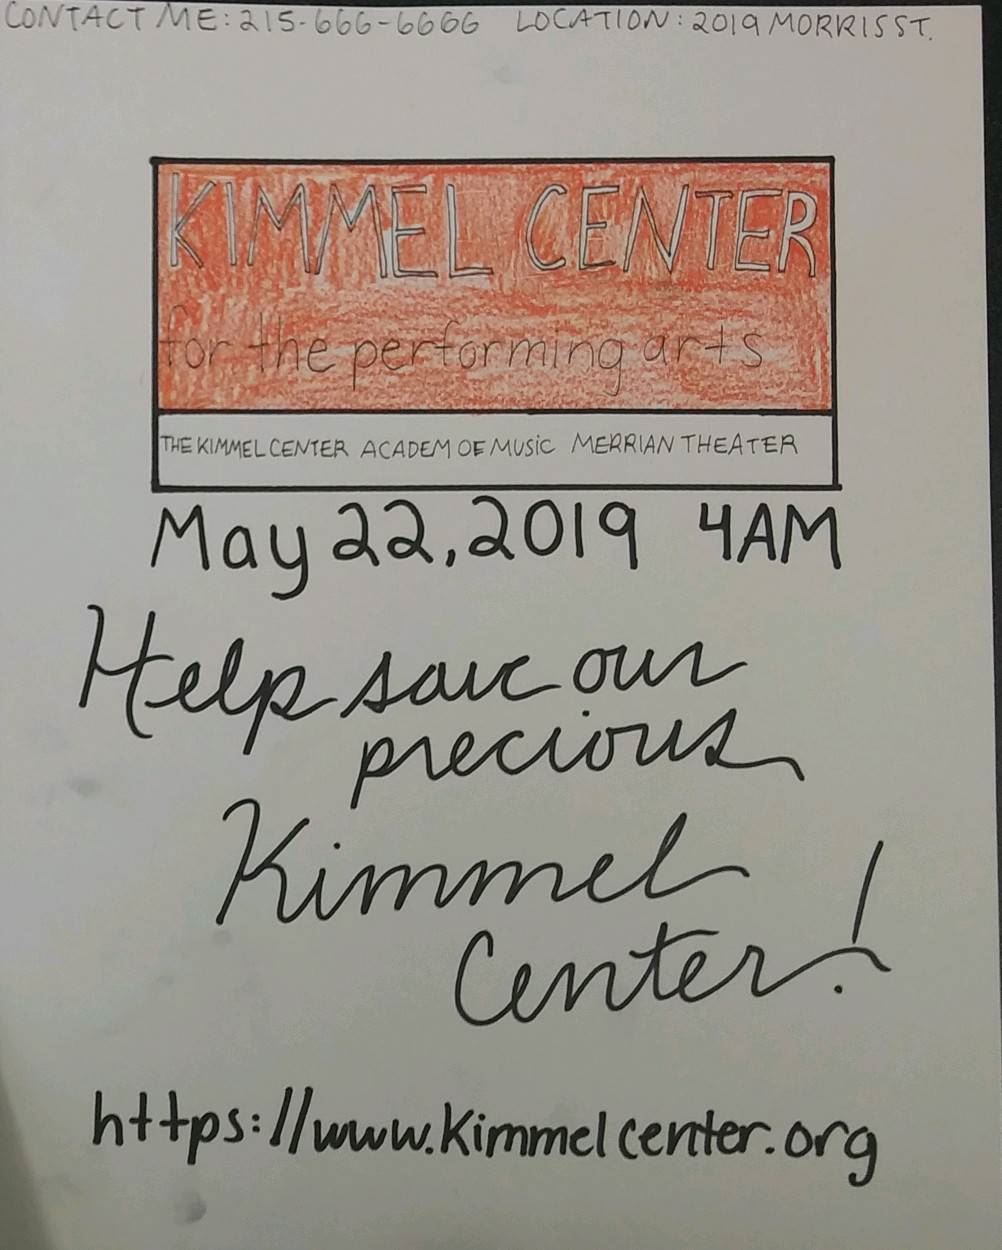 CONTACT ME: 215-666-6666 LOCATION: 2019 MORRIS ST.
KIMMEL CENTER
for the performing arts
THE KIMMEL CENTER ACADEM OF MUSIC MERRIAN THEATER
May 22, 2019 4AM
Help save our
precious
Kimmel
Center!
https://www.Kimmelcenter.org